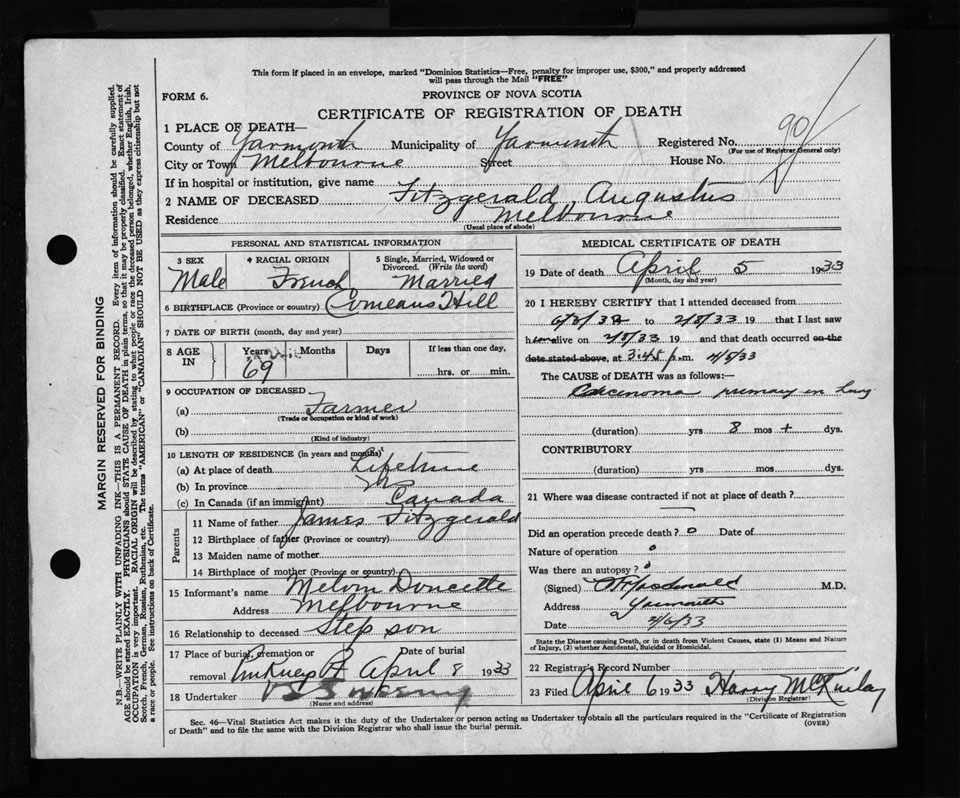 This form if placed in an envelope, marked "Dominion Statistics—Free, penalty for improper use, $300," and properly addressed
will pass through the Mail "FREE"
FORM 6.
PROVINCE OF NOVA SCOTIA
CERTIFICATE OF REGISTRATION OF DEATH
90
1 PLACE OF DEATH—
County of Yarmouth Municipality of Yarmouth Registered No.
(For use of Registrar General only)
City or Town Melbourne Street House No.
If in hospital or institution, give name
2 NAME OF DECEASED Fitzgerald, Augustus
Residence Melbourne
(Usual place of abode)
PERSONAL AND STATISTICAL INFORMATION
3 SEX 4 RACIAL ORIGIN 5 Single, Married, Widowed or
Divorced. (Write the word)
Male French Married
6 BIRTHPLACE (Province or country) Comeaus Hill
7 DATE OF BIRTH (month, day and year)
8 AGE IN Years Months Days If less than one day,
69 hrs. or min.
9 OCCUPATION OF DECEASED
(a) Farmer
(Trade or occupation or kind of work)
(b)
(Kind of industry)
10 LENGTH OF RESIDENCE (in years and months)
(a) At place of death Lifetime
(b) In province
(c) In Canada (if an immigrant) Canada
Parents
11 Name of father James Fitzgerald
12 Birthplace of father (Province or country)
13 Maiden name of mother
14 Birthplace of mother (Province or country)
15 Informant's name Melvin Doucette
Address Melbourne
16 Relationship to deceased Step son
17 Place of burial, cremation or Date of burial
removal Pinkneys Pt April 8 1933
18 Undertaker V S Sweeny
(Name and address)
MEDICAL CERTIFICATE OF DEATH
19 Date of death April 5 1933
(Month, day and year)
20 I HEREBY CERTIFY that I attended deceased from
to 4/5/33 19 that I last saw
h alive on 4/5/33 19 and that death occurred on the
date stated above, at 3.45 p.m. 4/5/33
The CAUSE of DEATH was as follows:—
Carcinoma primary in lung
(duration) yrs 8 mos + dys.
CONTRIBUTORY
(duration) yrs mos dys.
21 Where was disease contracted if not at place of death?
Did an operation precede death? o Date of
Nature of operation o
Was there an autopsy? o
(Signed) Macdonald M.D.
Address Yarmouth
Date 4/6/33
State the Disease causing Death, or in death from Violent Causes, state (1) Means and Nature
of Injury, (2) whether Accidental, Suicidal or Homicidal.
22 Registrar's Record Number
23 Filed April 6 1933 Harry McKinlay
(Division Registrar)
Sec. 46—Vital Statistics Act makes it the duty of the Undertaker or person acting as Undertaker to obtain all the particulars required in the "Certificate of Registration
of Death" and to file the same with the Division Registrar who shall issue the burial permit.
(OVER)
MARGIN RESERVED FOR BINDING
N.B.—WRITE PLAINLY WITH UNFADING INK—THIS IS A PERMANENT RECORD. Every item of information should be carefully supplied.
AGE should be stated EXACTLY. PHYSICIANS should STATE CAUSE OF DEATH in plain terms, so that it may be properly classified. Exact statement of
OCCUPATION is very important. RACIAL ORIGIN will be described by stating to what people or race the deceased person belonged, whether English, Irish,
Scotch, French, German, Russian, Ruthenian, etc. The terms "AMERICAN" or "CANADIAN" SHOULD NOT BE USED as they express citizenship but not
a race or people. See instructions on back of Certificate.